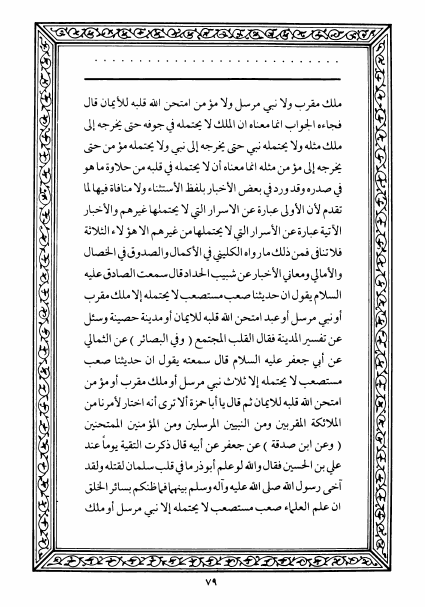 ملك مقرب ولا نبي مرسل ولا مؤمن امتحن الله قلبه للأيمان قال
فجاءه الجواب انما معناه ان الملك لا يحتمله في جوفه حتى يخرجه إلى
ملك مثله ولا يحتمله نبي حتى يخرجه إلى نبي ولا يحتمله مؤمن حتى
يخرجه إلى مؤمن مثله انما معناه أن لا يحتمله في قلبه من حلاوة ما هو
في صدره وقد ورد في بعض الأخبار بلفظ الأستثناء ولا منافاة فيها لما
تقدم لأن الأولى عبارة عن الاسرار التي لا يحتملها غيرهم والأخبار
الآتية عبارة عن الأسرار التي لا يحتملها من غيرهم الا هؤلاء الثلاثة
فلا تنافى فمن ذلك ما رواه الكليني في الأكمال والصدوق في الخصال
والأمالي ومعاني الأخبار عن شبيب الحداد قال سمعت الصادق عليه
السلام يقول ان حديثنا صعب مستصعب لا يحتمله إلا ملك مقرب
أو نبي مرسل أو عبد امتحن الله قلبه للايمان أو مدينة حصينة وسئل
عن تفسير المدينة فقال القلب المجتمع ( وفي البصائر ) عن الثمالي
عن أبي جعفر عليه السلام قال سمعته يقول ان حديثنا صعب
مستصعب لا يحتمله إلا ثلاث نبي مرسل أو ملك مقرب أو مؤمن
امتحن الله قلبه للايمان ثم قال يا أبا حمزة ألا ترى أنه اختار لأمرنا من
الملائكة المقربين ومن النبيين المرسلين ومن المؤمنين الممتحنين
( وعن ابن صدقة ) عن جعفر عن أبيه قال ذكرت التقية يوماً عند
علي بن الحسين فقال والله لو علم أبو ذر ما في قلب سلمان لقتله ولقد
آخى رسول الله صلى الله عليه وآله وسلم بينهما فما ظنكم بسائر الخلق
ان علم العلماء صعب مستصعب لا يحتمله إلا نبي مرسل أو ملك
٧٩